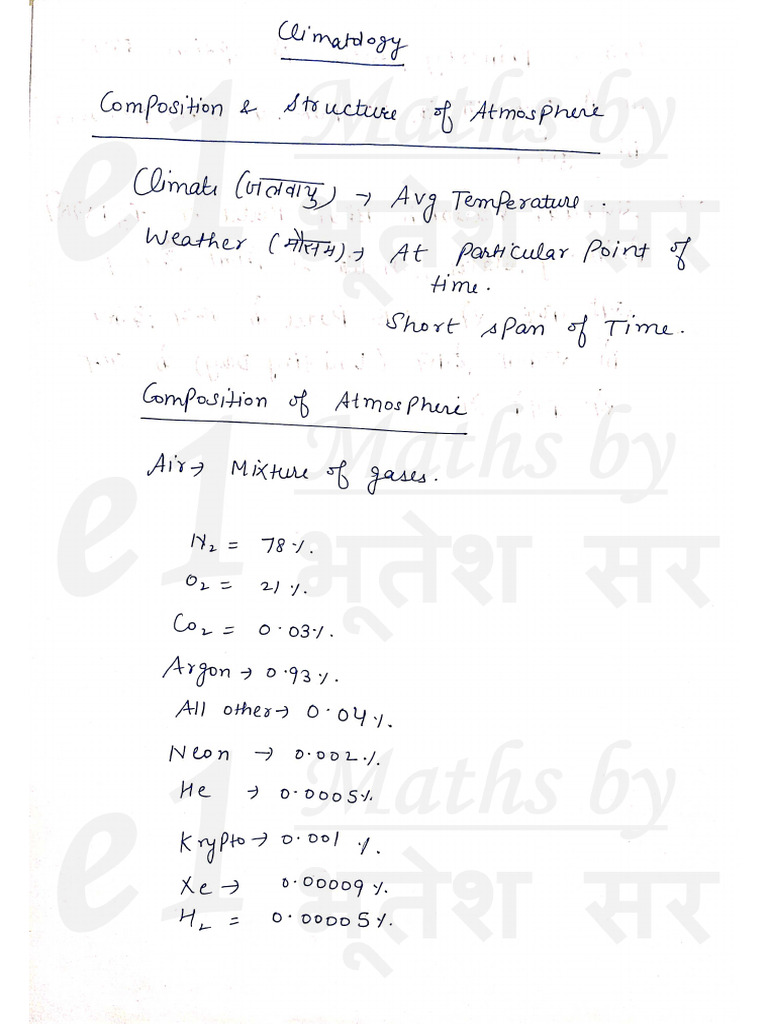 Climatology
Composition & Structure of Atmosphere
Climate (जलवायु) → Avg Temperature.
Weather (मौसम) → At particular point of
time.
Short span of Time.
Composition of Atmosphere
Air → Mixture of gases.
N₂ = 78%.
O₂ = 21%.
Co₂ = 0.03%.
Argon → 0.93%.
All other → 0.04%.
Neon → 0.002%.
He → 0.0005%
Krypto → 0.001 %.
Xe → 0.00009%.
H₂ = 0.00005%.
e1 Maths by
भूतेश सर
e1 Maths by
भूतेश सर
e1 Maths by
भूतेश सर